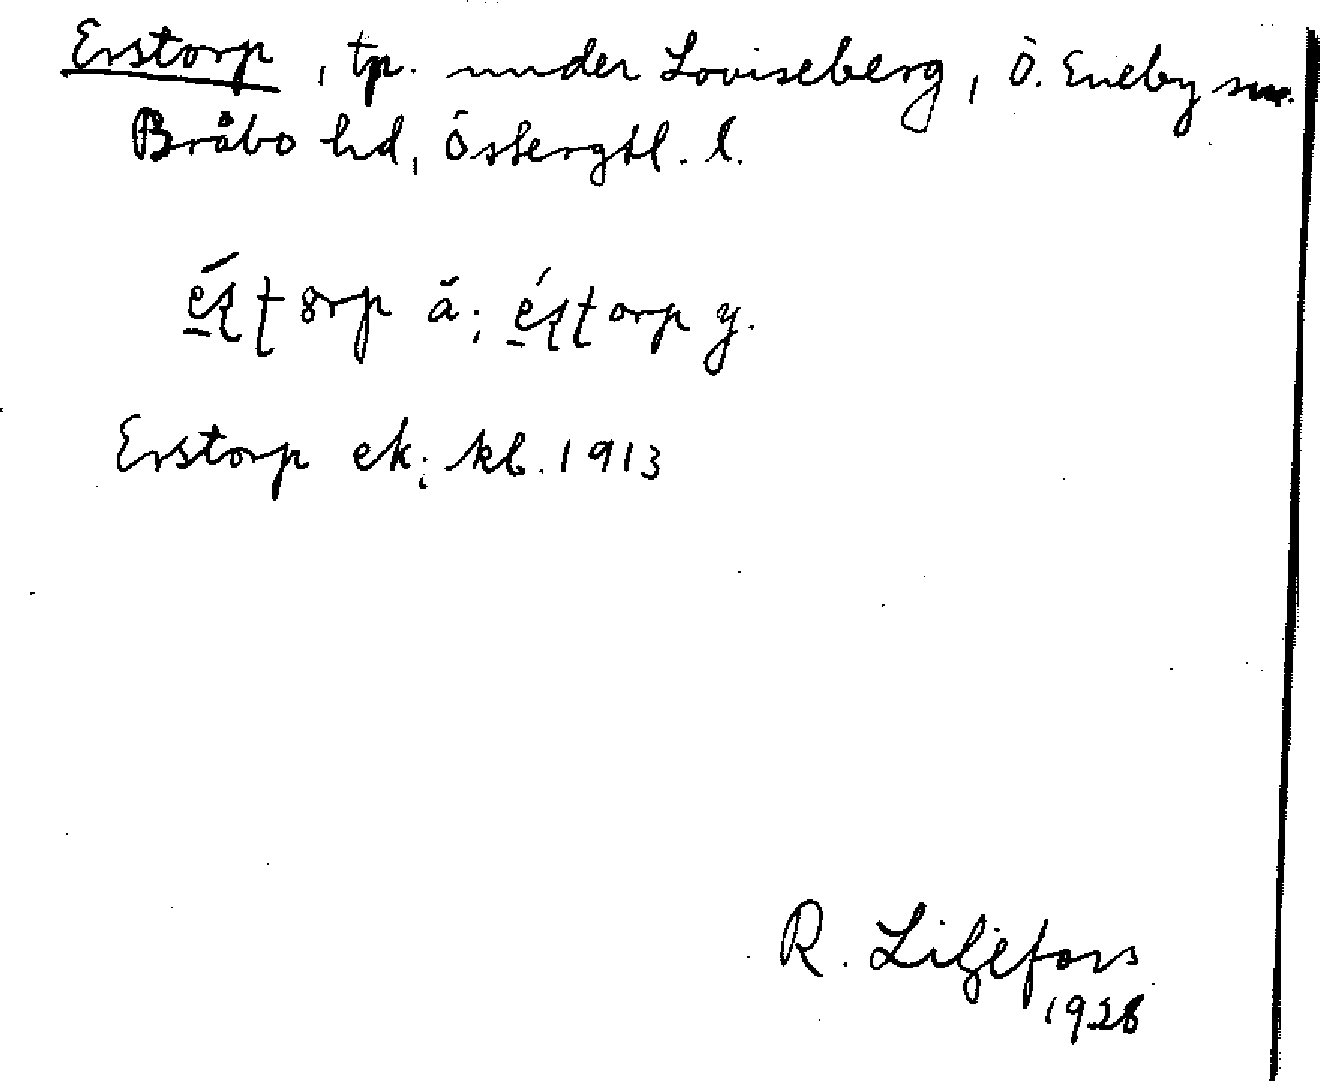 Erstorp, tp. under Loviseberg, Ö. Eneby sn.
Bråbo hd, Östergtl. l.
é̠ʂʈȣrp ä; é̠ʂʈorp y.
Erstorp ek; kb. 1913
R. Liljefors
1928